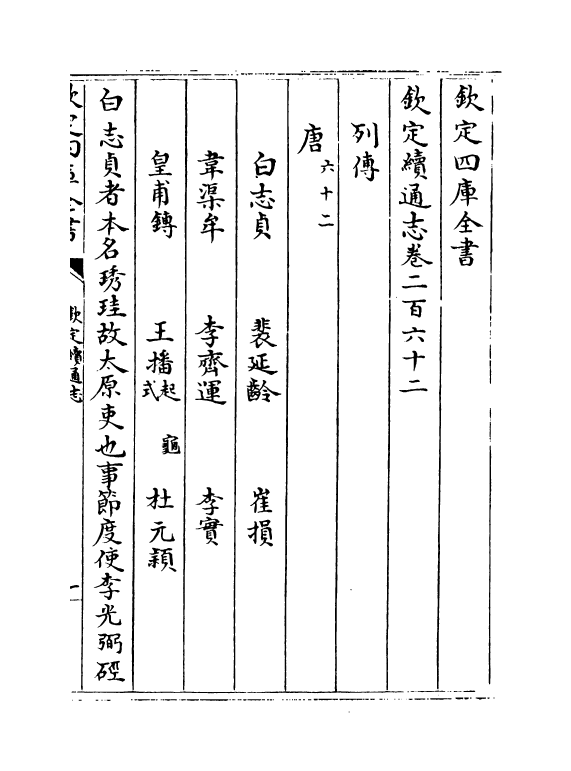 欽定四庫全書
欽定續通志卷二百六十二
列傳
唐六十二
白志貞 裴延齡 崔損
韋渠牟 李齊運 李實
皇甫鎛 王播起式 龜 杜元穎
白志貞者本名琇珪故太原吏也事節度使李光弼硜
欽定四庫全書
欽定續通志
一